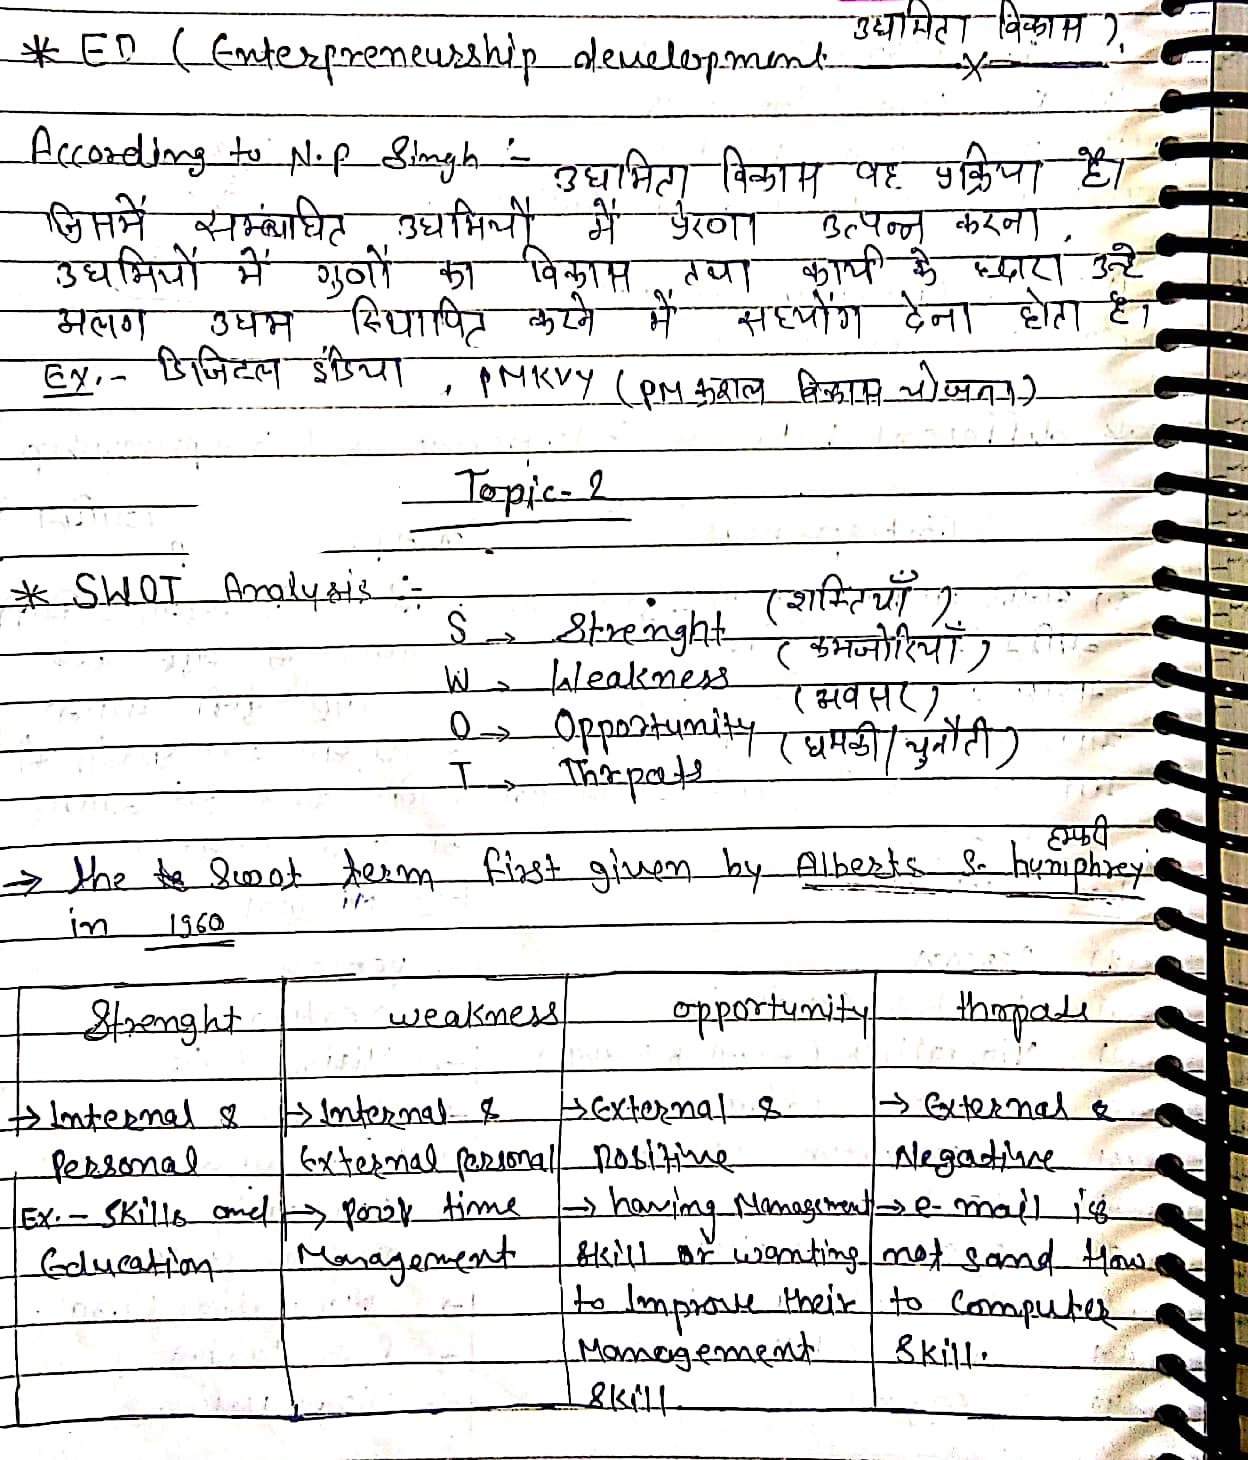 * ED ( Enterpreneurship development उधमिता विकास ).
According to N.P Singh :- उधमिता विकास वह प्रक्रिया है।
जिसमें सम्बंधित उधमियों में प्रेरणा उत्पन्न करना,
उधमियों में गुणों का विकास तथा कार्यों के द्धारा उन्हे
अलग उधम स्थापित करने में सहयोग देना होता है।
Ex.- डिजिटल इंडिया , PMKVY ( PM कुशल विकास योजना )
Topic- 2
* SWOT Analysis :-
S → Strenght ( शक्तियाँ )
W → Weakness ( कमजोरियाँ )
O → Opportunity ( अवसर )
T → Threats ( धमकी / चुनौती )
हम्फ्री
→ the Swot term first given by Alberts S. humphrey
in 1960
Strenght weakness opportunity threats
→ Internal & → Internal & → External & → External &
Personal External personal positive Negative
Ex.- Skills and → poor time → having Management → e-mail is
Education Management Skill or wanting not sand How
to Improve their to Computer
Management Skill.
Skill.